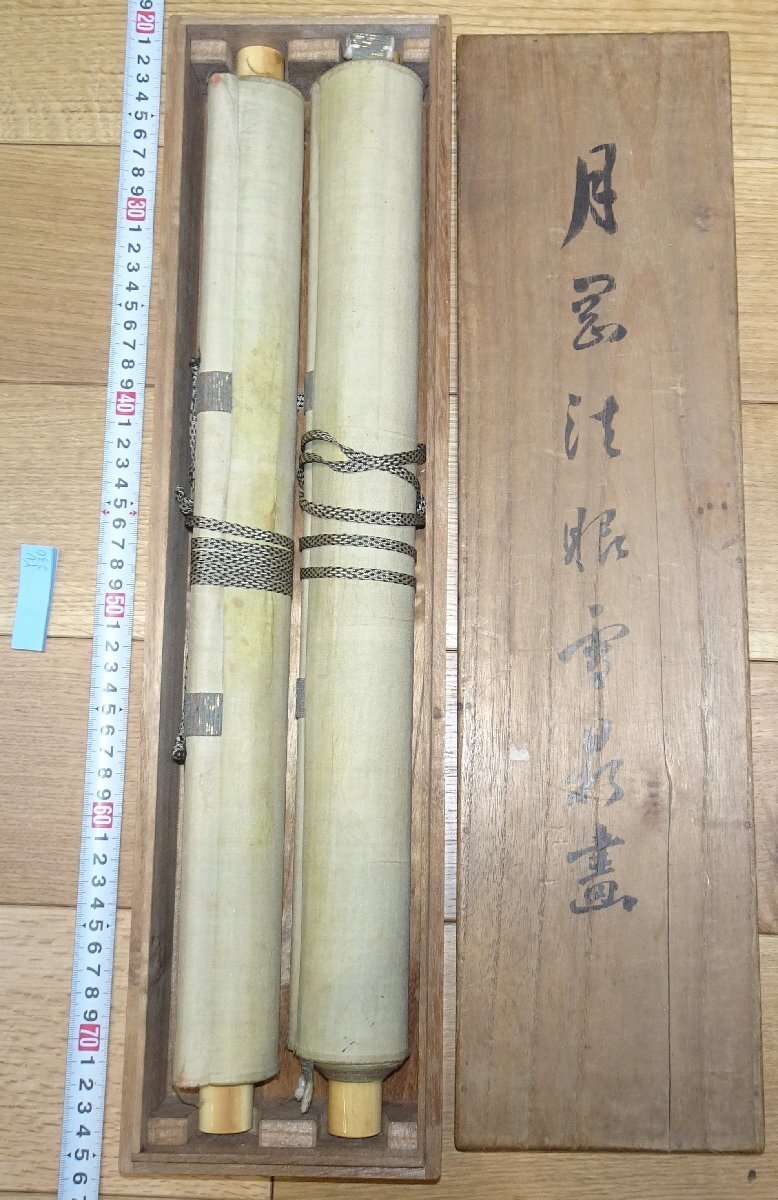 9 20 1 2 3 4 5 6 7 8 9 30 1 2 3 4 5 6 7 8 9 40 1 2 3 4 5 6 7 8 9 50 1 2 3 4 5 6 7 8 9 60 1 2 3 4 5 6 7 8 9 70 1 2 3 4 5 6 7
月岡法眼雪鼎畫